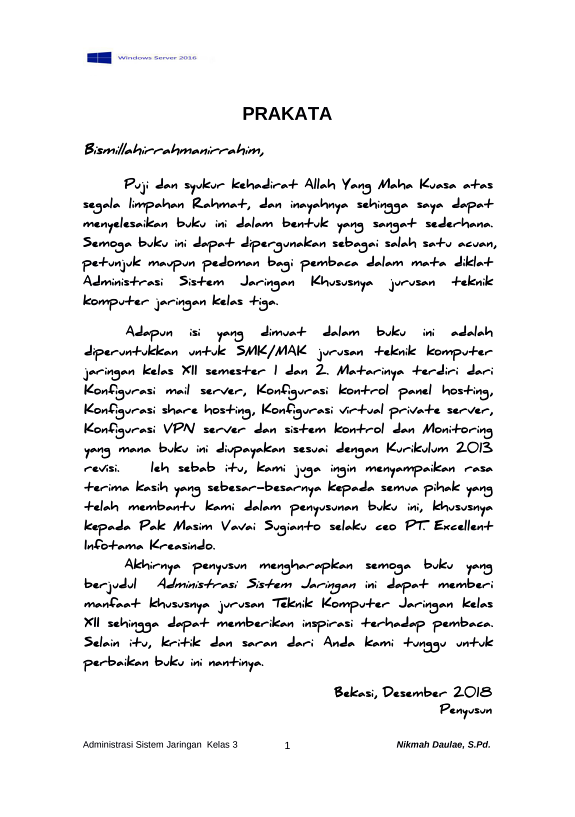 Windows Server 2016
PRAKATA
Bismillahirrahmanirrahim,
Puji dan syukur kehadirat Allah Yang Maha Kuasa atas
segala limpahan Rahmat, dan inayahnya sehingga saya dapat
menyelesaikan buku ini dalam bentuk yang sangat sederhana.
Semoga buku ini dapat dipergunakan sebagai salah satu acuan,
petunjuk maupun pedoman bagi pembaca dalam mata diklat
Administrasi Sistem Jaringan Khususnya jurusan teknik
komputer jaringan kelas tiga.
Adapun isi yang dimuat dalam buku ini adalah
diperuntukkan untuk SMK/MAK jurusan teknik komputer
jaringan kelas XII semester 1 dan 2. Matarinya terdiri dari
Konfigurasi mail server, Konfigurasi kontrol panel hosting,
Konfigurasi share hosting, Konfigurasi virtual private server,
Konfigurasi VPN server dan sistem kontrol dan Monitoring
yang mana buku ini diupayakan sesuai dengan Kurikulum 2013
revisi. leh sebab itu, kami juga ingin menyampaikan rasa
terima kasih yang sebesar-besarnya kepada semua pihak yang
telah membantu kami dalam penyusunan buku ini, khususnya
kepada Pak Masim Vavai Sugianto selaku ceo PT. Excellent
Infotama Kreasindo.
Akhirnya penyusun mengharapkan semoga buku yang
berjudul Administrasi Sistem Jaringan ini dapat memberi
manfaat khususnya jurusan Teknik Komputer Jaringan kelas
XII sehingga dapat memberikan inspirasi terhadap pembaca.
Selain itu, kritik dan saran dari Anda kami tunggu untuk
perbaikan buku ini nantinya.
Bekasi, Desember 2018
Penyusun
Administrasi Sistem Jaringan Kelas 3 1 Nikmah Daulae, S.Pd.